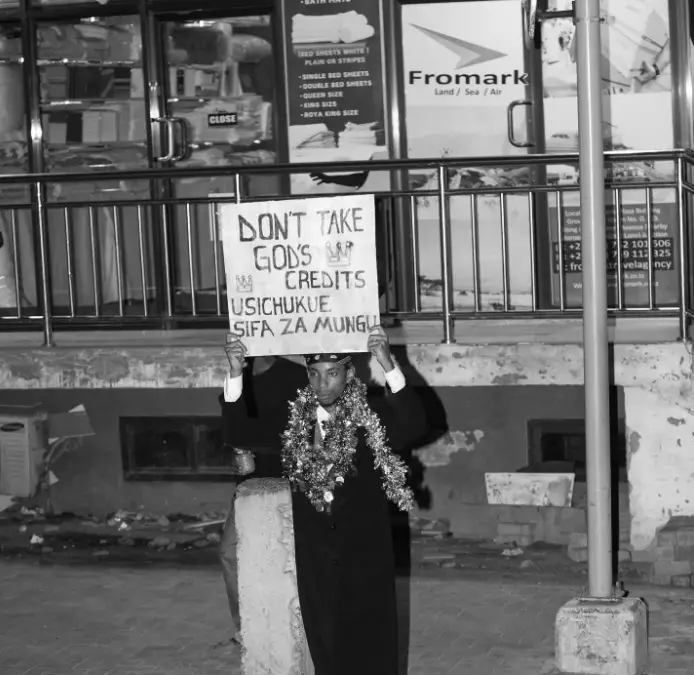 BATH MATS
(BED SHEETS WHITE)
PLAIN OR STRIPES
• SINGLE BED SHEETS
• DOUBLE BED SHEETS
• QUEEN SIZE
• KING SIZE
• ROYA KING SIZE
CLOSE
Fromark
Land / Sea / Air
DON'T TAKE
GOD'S
CREDITS
USICHUKUE
SIFA ZA MUNGU